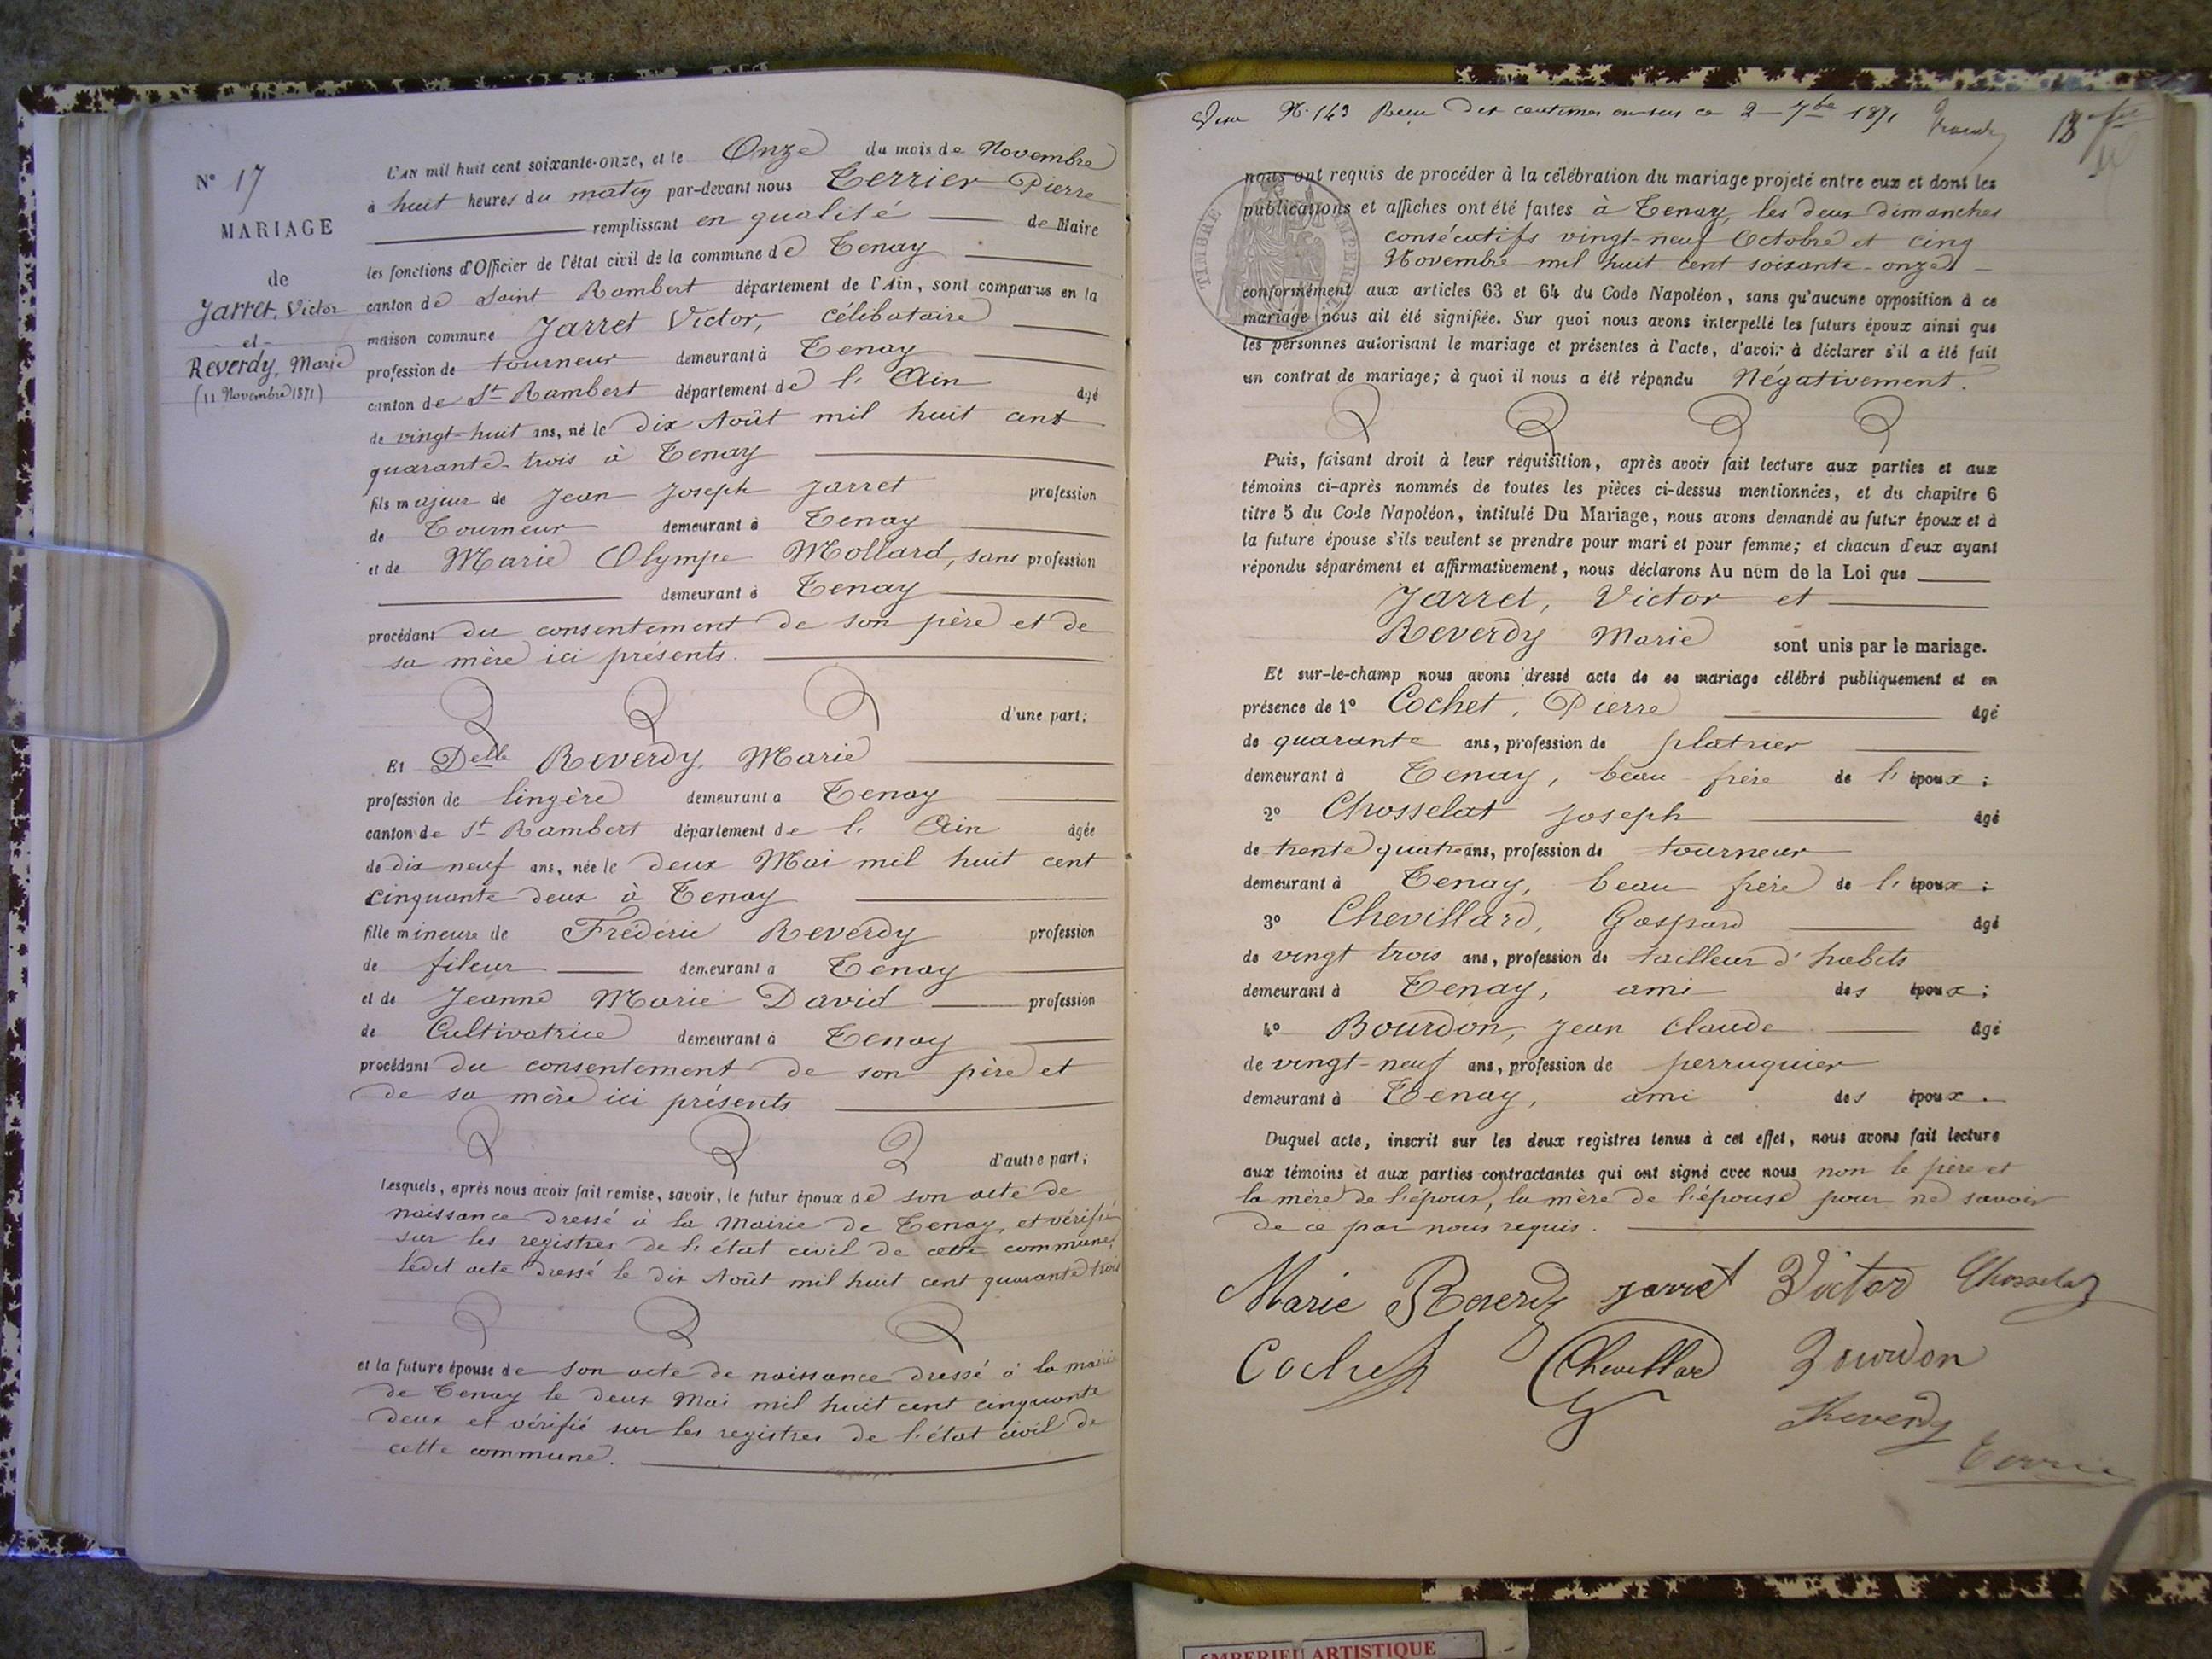 N° 17
MARIAGE
de
Jarret, Victor
- et -
Reverdy, Marie
(11 Novembre 1871)
L'AN mil huit cent soixante-onze, et le Onze du mois de Novembre
à huit heures du matin par-devant nous Terrier Pierre
remplissant en qualité de Maire
les fonctions d'Officier de l'état civil de la commune de Tenay
canton de Saint Rambert département de l'Ain, sont comparus en la
maison commune Jarret Victor, célibataire
profession de tourneur demeurant à Tenay
canton de St Rambert département de l'Ain âgé
de vingt-huit ans, né le dix Août mil huit cent
quarante-trois à Tenay
fils majeur de Jean Joseph Jarret profession
de Tourneur demeurant à Tenay
et de Marie Olympe Mollard, sans profession
demeurant à Tenay
procédant du consentement de son père et de
sa mère ici présents.
d'une part;
Et Delle Reverdy, Marie
profession de lingère demeurant à Tenay
canton de St Rambert département de l'Ain âgée
de dix neuf ans, née le deux Mai mil huit cent
cinquante deux à Tenay
fille mineure de Frédéric Reverdy profession
de fileur demeurant à Tenay
et de Jeanne Marie David profession
de Cultivatrice demeurant à Tenay
procédant du consentement de son père et
de sa mère ici présents
d'autre part;
Lesquels, après nous avoir fait remise, savoir, le futur époux de son acte de
naissance dressé à la Mairie de Tenay, et vérifié
sur les registres de l'état civil de cette commune,
ledit acte dressé le dix Août mil huit cent quarante trois
et la future épouse de son acte de naissance dressé à la mairie
de Tenay le deux Mai mil huit cent cinquante
deux et vérifié sur les registres de l'état civil de
cette commune.
N° 143 Reçu dix centimes en sus ce 2 - 7bre 1871
TIMBRE IMPERIAL
nous ont requis de procéder à la célébration du mariage projeté entre eux et dont les
publications et affiches ont été faites à Tenay, les deux dimanches
consécutifs vingt-neuf Octobre et cinq
Novembre mil huit cent soixante-onze
conformément aux articles 63 et 64 du Code Napoléon, sans qu'aucune opposition à ce
mariage nous ait été signifiée. Sur quoi nous avons interpellé les futurs époux ainsi que
les personnes autorisant le mariage et présentes à l'acte, d'avoir à déclarer s'il a été fait
un contrat de mariage; à quoi il nous a été répondu Négativement.
Puis, faisant droit à leur réquisition, après avoir fait lecture aux parties et aux
témoins ci-après nommés de toutes les pièces ci-dessus mentionnées, et du chapitre 6
titre 5 du Code Napoléon, intitulé Du Mariage, nous avons demandé au futur époux et à
la future épouse s'ils veulent se prendre pour mari et pour femme; et chacun d'eux ayant
répondu séparément et affirmativement, nous déclarons Au nom de la Loi que
Jarret, Victor et
Reverdy Marie sont unis par le mariage.
Et sur-le-champ nous avons dressé acte de ce mariage célébré publiquement et en
présence de 1° Cochet, Pierre âgé
de quarante ans, profession de platrier
demeurant à Tenay, beau-frère de l'époux;
2° Chosselat Joseph âgé
de trente quatre ans, profession de tourneur
demeurant à Tenay, beau frère de l'époux;
3° Chevillard, Gaspard âgé
de vingt trois ans, profession de tailleur d'habits
demeurant à Tenay, ami des époux;
4° Bourdon, Jean Claude âgé
de vingt-neuf ans, profession de perruquier
demeurant à Tenay, ami des époux.
Duquel acte, inscrit sur les deux registres tenus à cet effet, nous avons fait lecture
aux témoins et aux parties contractantes qui ont signé avec nous non le père et
la mère de l'époux, la mère de l'épouse pour ne savoir
de ce par nous requis.
Marie Reverdy Jarret Victor Chosselat
Cochet Chevillard Bourdon
Reverdy
Terrier
AMBERIEU ARTISTIQUE